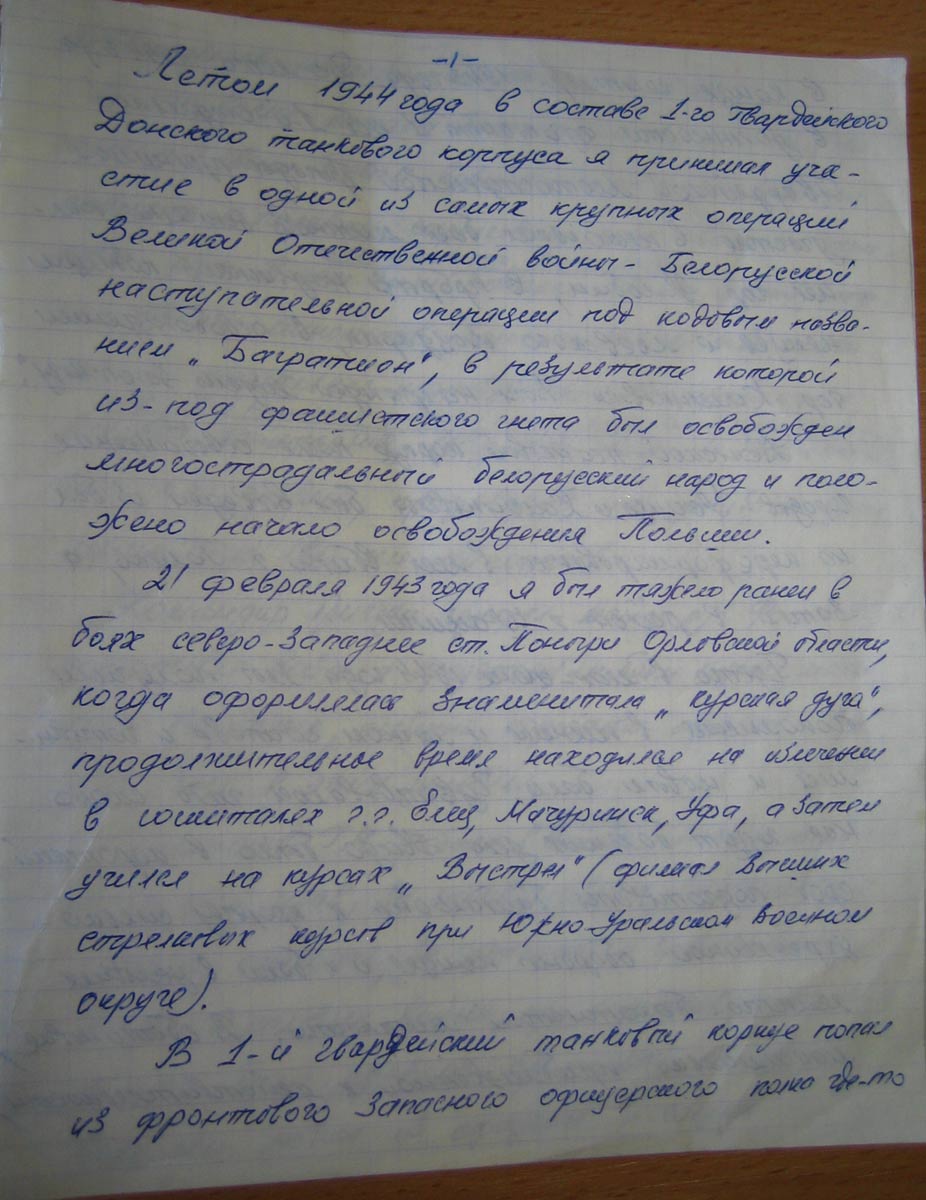 -1-
Летом 1944 года в составе 1-го гвардейского
Донского танкового корпуса я принимал уча-
стие в одной из самых крупных операций
Великой Отечественной войны - Белорусской
наступательной операции под кодовым назва-
нием „Багратион", в результате которой
из-под фашистского гнета был освобожден
многострадальный белорусский народ и поло-
жено начало освобождения Польши.
21 февраля 1943 года я был тяжело ранен в
боях северо-западнее ст. Поныри Орловской области,
когда оформлялась знаменитая „курская дуга",
продолжительное время находился на излечении
в госпиталях г.г. Елец, Мичуринск, Уфа, а затем
учился на курсах „Выстрел" (филиал Высших
стрелковых курсов при Южно-Уральском военном
округе).
В 1-й гвардейский танковый корпус попал
из фронтового запасного офицерского полка где-то